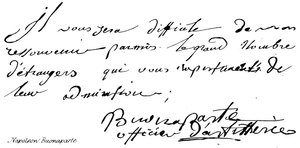 Il vous sera difficile de vous
ressouvenir parmis le grand Nombre
d'étrangers qui vous importunent de
leur admiration;
Buonaparte
officier d'artillerie
Napoleon Buonaparte